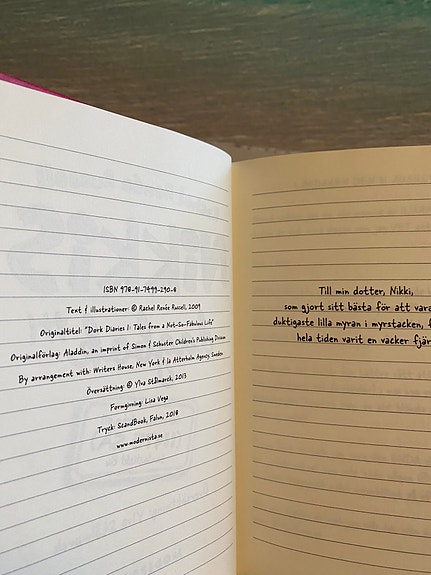 ISBN 978-91-7499-290-8
Text & illustrationer: © Rachel Renée Russell, 2009
Originaltitel: "Dork Diaries 1: Tales from a Not-So-Fabulous Life"
Originalförlag: Aladdin, an imprint of Simon & Schuster Children's Publishing Division
By arrangement with: Writers House, New York & Ia Atterholm Agency, Sweden
Översättning: © Ylva Stålmarck, 2013
Formgivning: Lisa Vega
Tryck: ScandBook, Falun, 2018
www.modernista.se
Till min dotter, Nikki,
som gjort sitt bästa för att vara
duktigaste lilla myran i myrstacken,
hela tiden varit en vacker